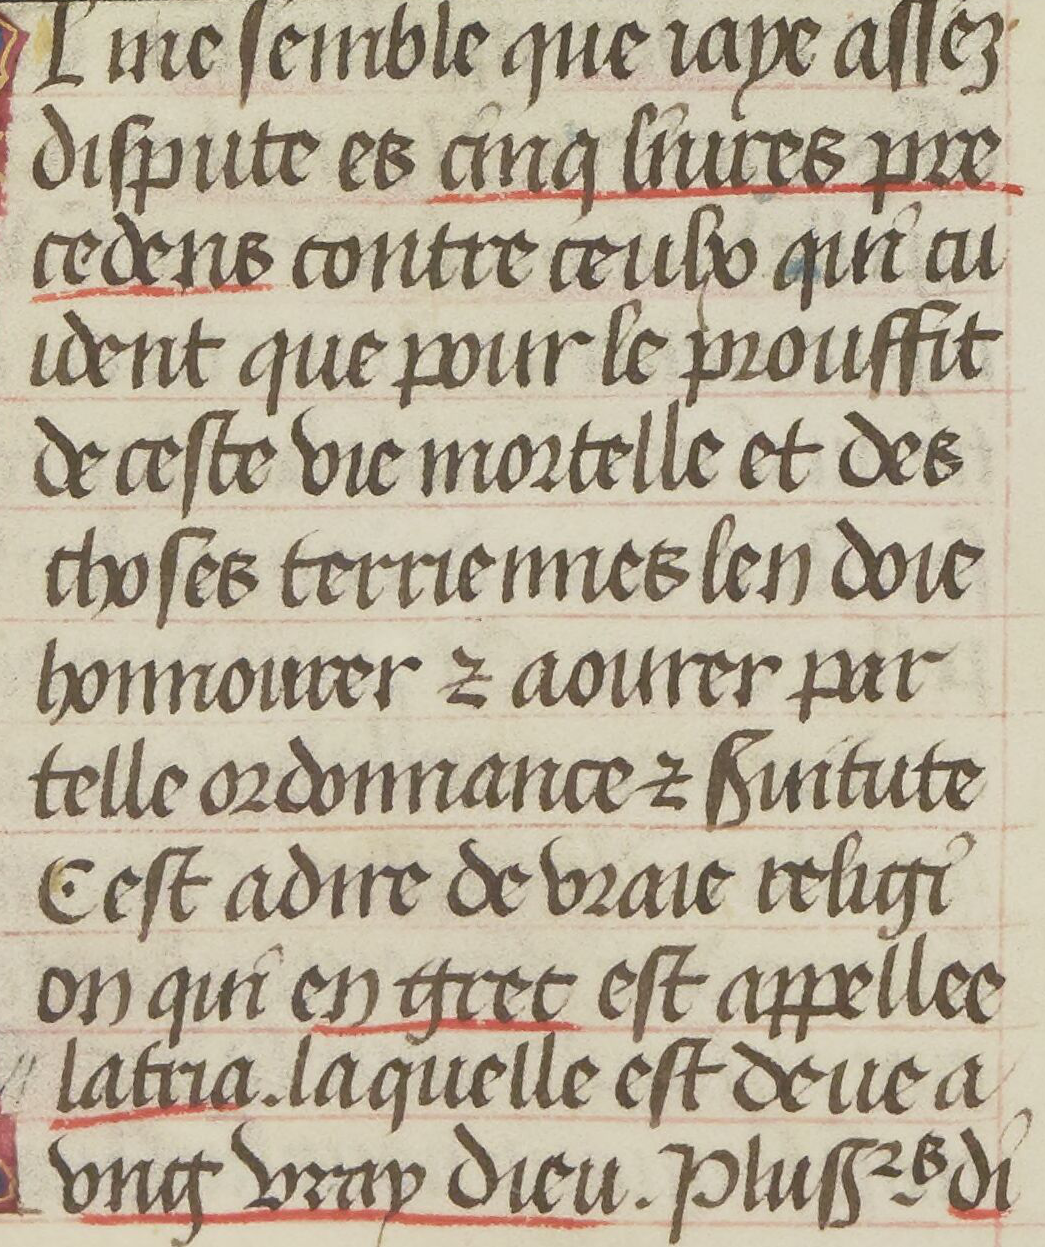 L me semble que iaye assez
dispute es cinq liures pre
cedens contre ceulx qui cu
ident que pour le prouffit
de ceste vie mortelle et des
choses terriennes len doie
honnourer ⁊ aourer par
telle ordonnance ⁊ ſuitute
Cest adire de vraie religi
on qui en grec est appellee
latria. laquelle est deue a
vng vray dieu. Pluss²s di